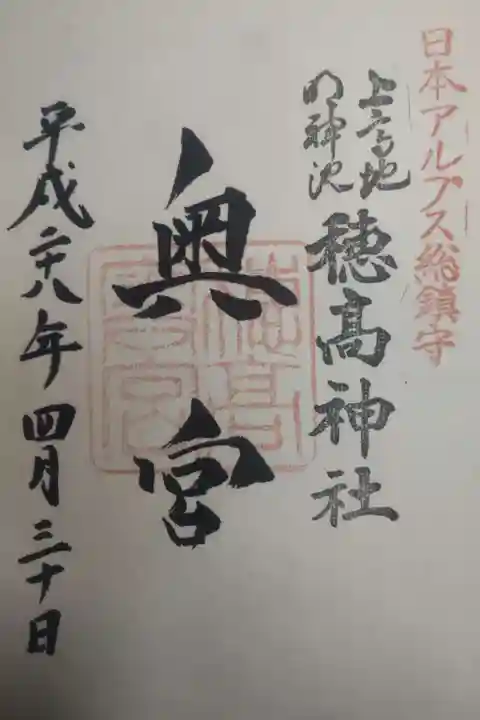 日本アルプス総鎮守
上高地
明神池
穂髙神社
奥宮
平成二十八年四月三十日